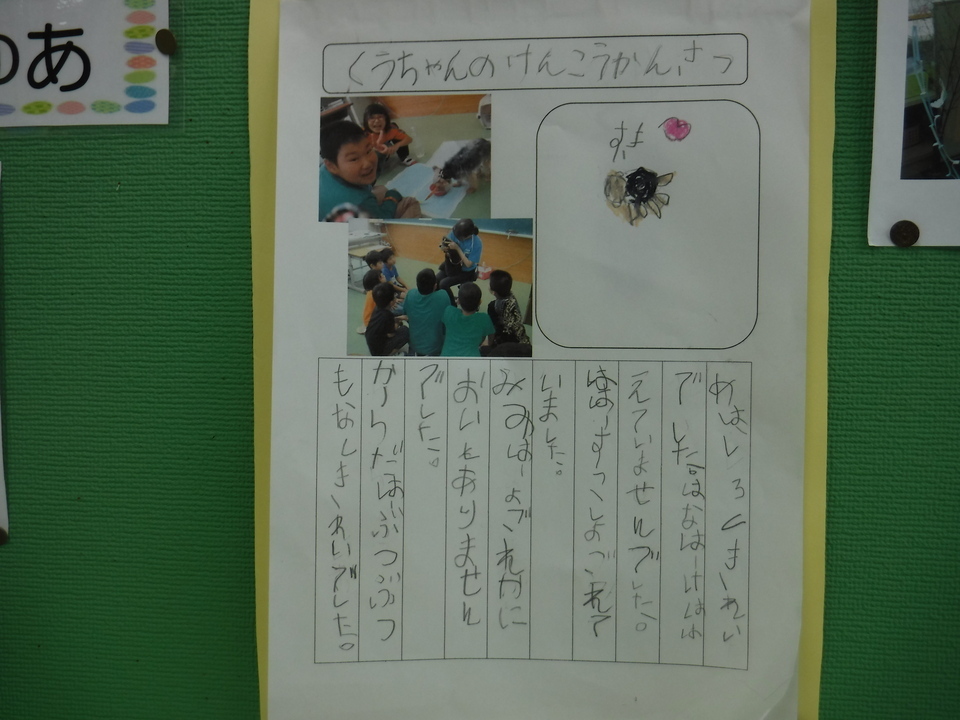 ゆあ
くうちゃんのけんこうかんさつ
めはしろくきれい
でした。はなはーけはは
えていませんでした。
はは すこしよごれて
いました。
みみはーよごれやに
おいとありません
でした。
からだはぶつぶつ
もなしきれいでした。